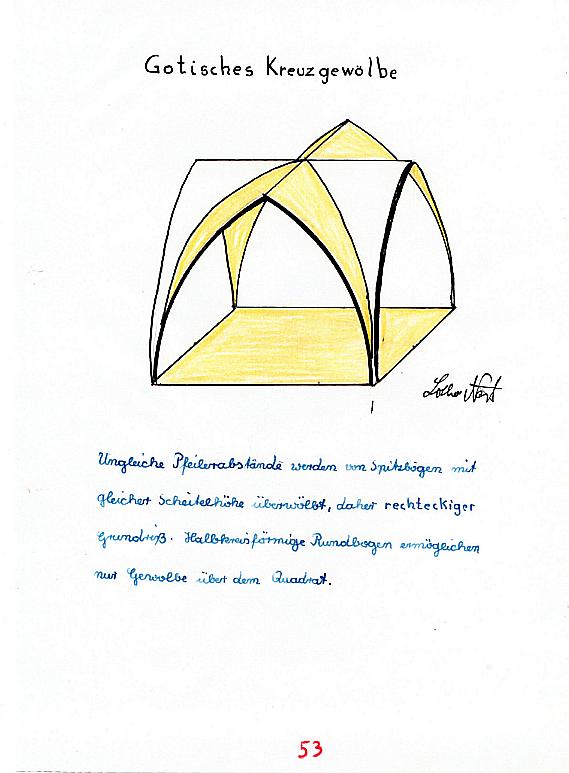 Gotisches Kreuzgewölbe
Ungleiche Pfeilerabstände werden von Spitzbögen mit
gleicher Scheitelhöhe überwölbt, daher rechteckiger
Grundriß. Halbkreisförmige Rundbogen ermöglichen
nur Gewölbe über dem Quadrat.
53